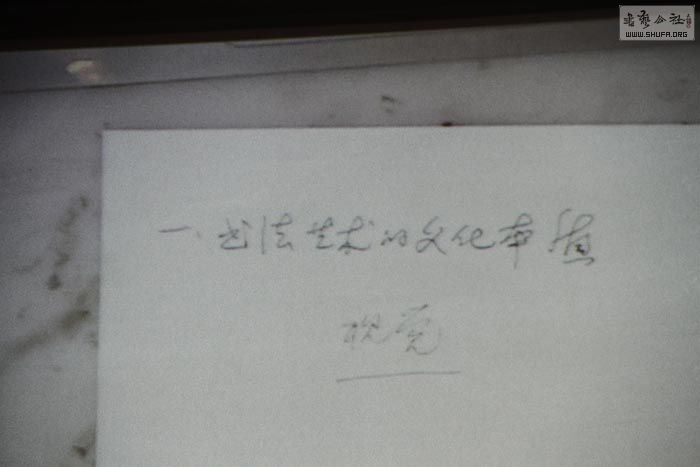 书艺公社
WWW.SHUFA.ORG
一、书法艺术的文化本值
视觉